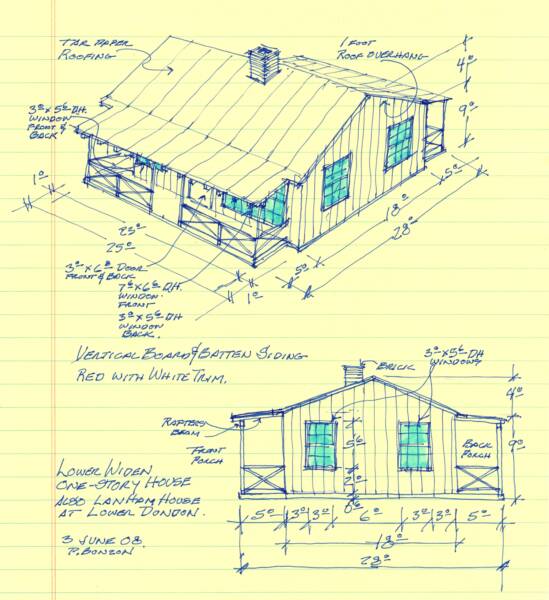 TAR PAPER
ROOFING
1 FOOT
ROOF OVERHANG
4⁰
9⁰
3⁰ x 5⁶ DH.
WINDOW
FRONT &
BACK
1⁰
5⁰
18⁰
28⁰
23⁰
25⁰
3⁰ x 6⁸ DOOR
FRONT & BACK
5⁰
1⁰
7⁰ x 6⁰ DH.
WINDOW
FRONT
3⁰ x 5⁶ DH
WINDOW
BACK.
VERTICAL BOARD & BATTEN SIDING
RED WITH WHITE TRIM.
BRICK
3⁰ x 5⁶ DH
WINDOWS
4⁰
RAFTERS
BEAM
FRONT
PORCH
5⁶
BACK
PORCH
9⁰
LOWER WIDEN
ONE-STORY HOUSE
ALSO LANHAM HOUSE
AT LOWER DUNDON.
5⁰ 3⁰ 3⁰ 6⁰ 3⁰ 3⁰ 5⁰
18⁰
28⁰
3 JUNE 08.
P. BONZON